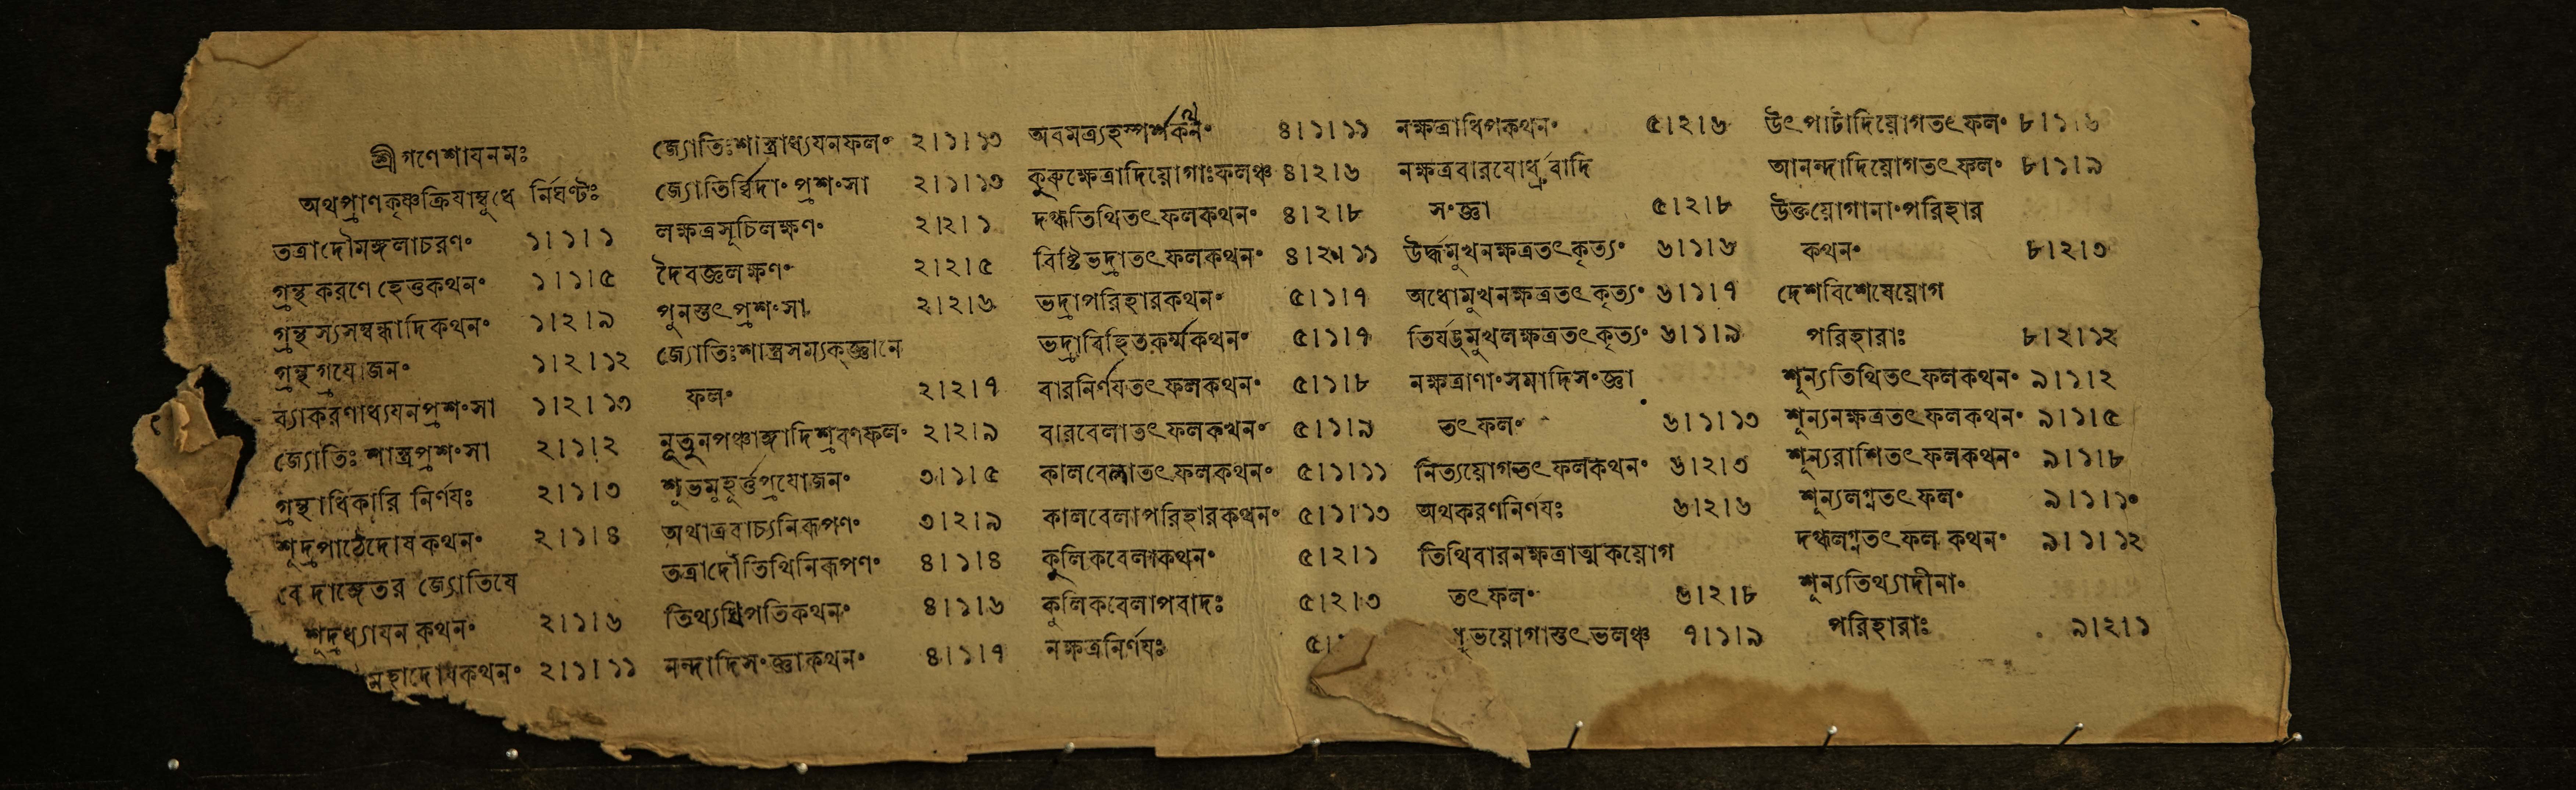 শ্রীগণেশাযনমঃ
অথপ্রাণকৃষ্ণক্রিযাম্বুধে নির্ঘণ্টঃ
তত্রাদৌমঙ্গলাচরণং ১।১।১
গ্রন্থকরণে হেতুকথনং ১।১।৫
গ্রন্থস্যসম্বন্ধাদিকথনং ১।২।৯
গ্রন্থপ্রযোজনং ১।২।১২
ব্যাকরণাধ্যযনপ্রশংসা ১।২।১৩
জ্যোতিঃ শাস্ত্রপ্রশংসা ২।১।২
গ্রন্থাধিকারি নির্ণযঃ ২।১।৩
শূদ্রপাঠেদোষকথনং ২।১।৪
বেদাঙ্গেতর জ্যোতিষে
শূদ্রধ্যাযন কথনং ২।১।৬
মহাদোষকথনং ২।১।১১
জ্যোতিঃশাস্ত্রাধ্যযনফলং ২।১।১৩
জ্যোতির্ব্বিদাং প্রশংসা ২।১।১৩
লক্ষত্রসূচিলক্ষণং ২।২।১
দৈবজ্ঞলক্ষণং ২।২।৫
পুনস্তৎপ্রশংসা ২।২।৬
জ্যোতিঃশাস্ত্রসম্যকজ্ঞানে
ফলং ২।২।৭
নূতুনপঞ্চাঙ্গাদিশ্রবণফলং ২।২।৯
শূভমুহূর্ত্তপ্রযোজনং ৩।১।৫
অথাত্রবাচ্যনিৰূপণং ৩।২।৯
তত্রাদৌতিথিনিৰূপণং ৪।১।৪
তিথ্যধিপতিকথনং ৪।১।৬
নন্দাদিসংজ্ঞাকথনং ৪।১।৭
অবমত্র্যহস্পর্শকনং ৪।১।১১
কুরুক্ষেত্রাদিয়োগাঃফলঞ্চ ৪।২।৬
দগ্ধতিথিতৎফলকথনং ৪।২।৮
বিষ্টিভদ্রাতৎফলকথনং ৪।২।১১
ভদ্রাপরিহারকথনং ৫।১।৭
ভদ্রাবিহিতকর্ম্মকথনং ৫।১।৭
বারনির্ণযতৎফলকথনং ৫।১।৮
বারবেলাতৎফলকথনং ৫।১।৯
কালবেলাতৎফলকথনং ৫।১।১১
কালবেলাপরিহারকথনং ৫।১।১৩
কুলিকবেলাকথনং ৫।২।১
কুলিকবেলাপবাদঃ ৫।২।৩
নক্ষত্রনির্ণযঃ ৫।
নক্ষত্রাধিপকথনং ৫।২।৬
নক্ষত্রবারযোর্ধ্রুবাদি
সংজ্ঞা ৫।২।৮
উর্দ্ধমুখনক্ষত্রতৎকৃত্যং ৬।১।৬
অধোমুখনক্ষত্রতৎকৃত্যং ৬।১।৭
তির্যঙ্মুখলক্ষত্রতৎকৃত্যং ৬।১।৯
নক্ষত্রাণাংসমাদিসংজ্ঞা
তৎফলং ৬।১।১৩
নিত্যয়োগতৎফলকথনং ৬।২।৩
অথকরণনির্ণযঃ ৬।২।৬
তিথিবারনক্ষত্রাত্মকয়োগ
তৎফলং ৬।২।৮
ভয়োগাস্তৎভলঞ্চ ৭।১।৯
উৎপাটাদিয়োগতৎফলং ৮।১।৬
আনন্দাদিয়োগতৎফলং ৮।১।৯
উক্তয়োগানাংপরিহার
কথনং ৮।২।৩
দেশবিশেষেয়োগ
পরিহারাঃ ৮।২।১২
শূন্যতিথিতৎফলকথনং ৯।১।২
শূন্যনক্ষত্রতৎফলকথনং ৯।১।৫
শূন্যরাশিতৎফলকথনং ৯।১।৮
শূন্যলগ্নতৎফলং ৯।১।১০
দগ্ধলগ্নতৎফল কথনং ৯।১।১২
শূন্যতিথ্যাদীনাং
পরিহারাঃ ৯।২।১